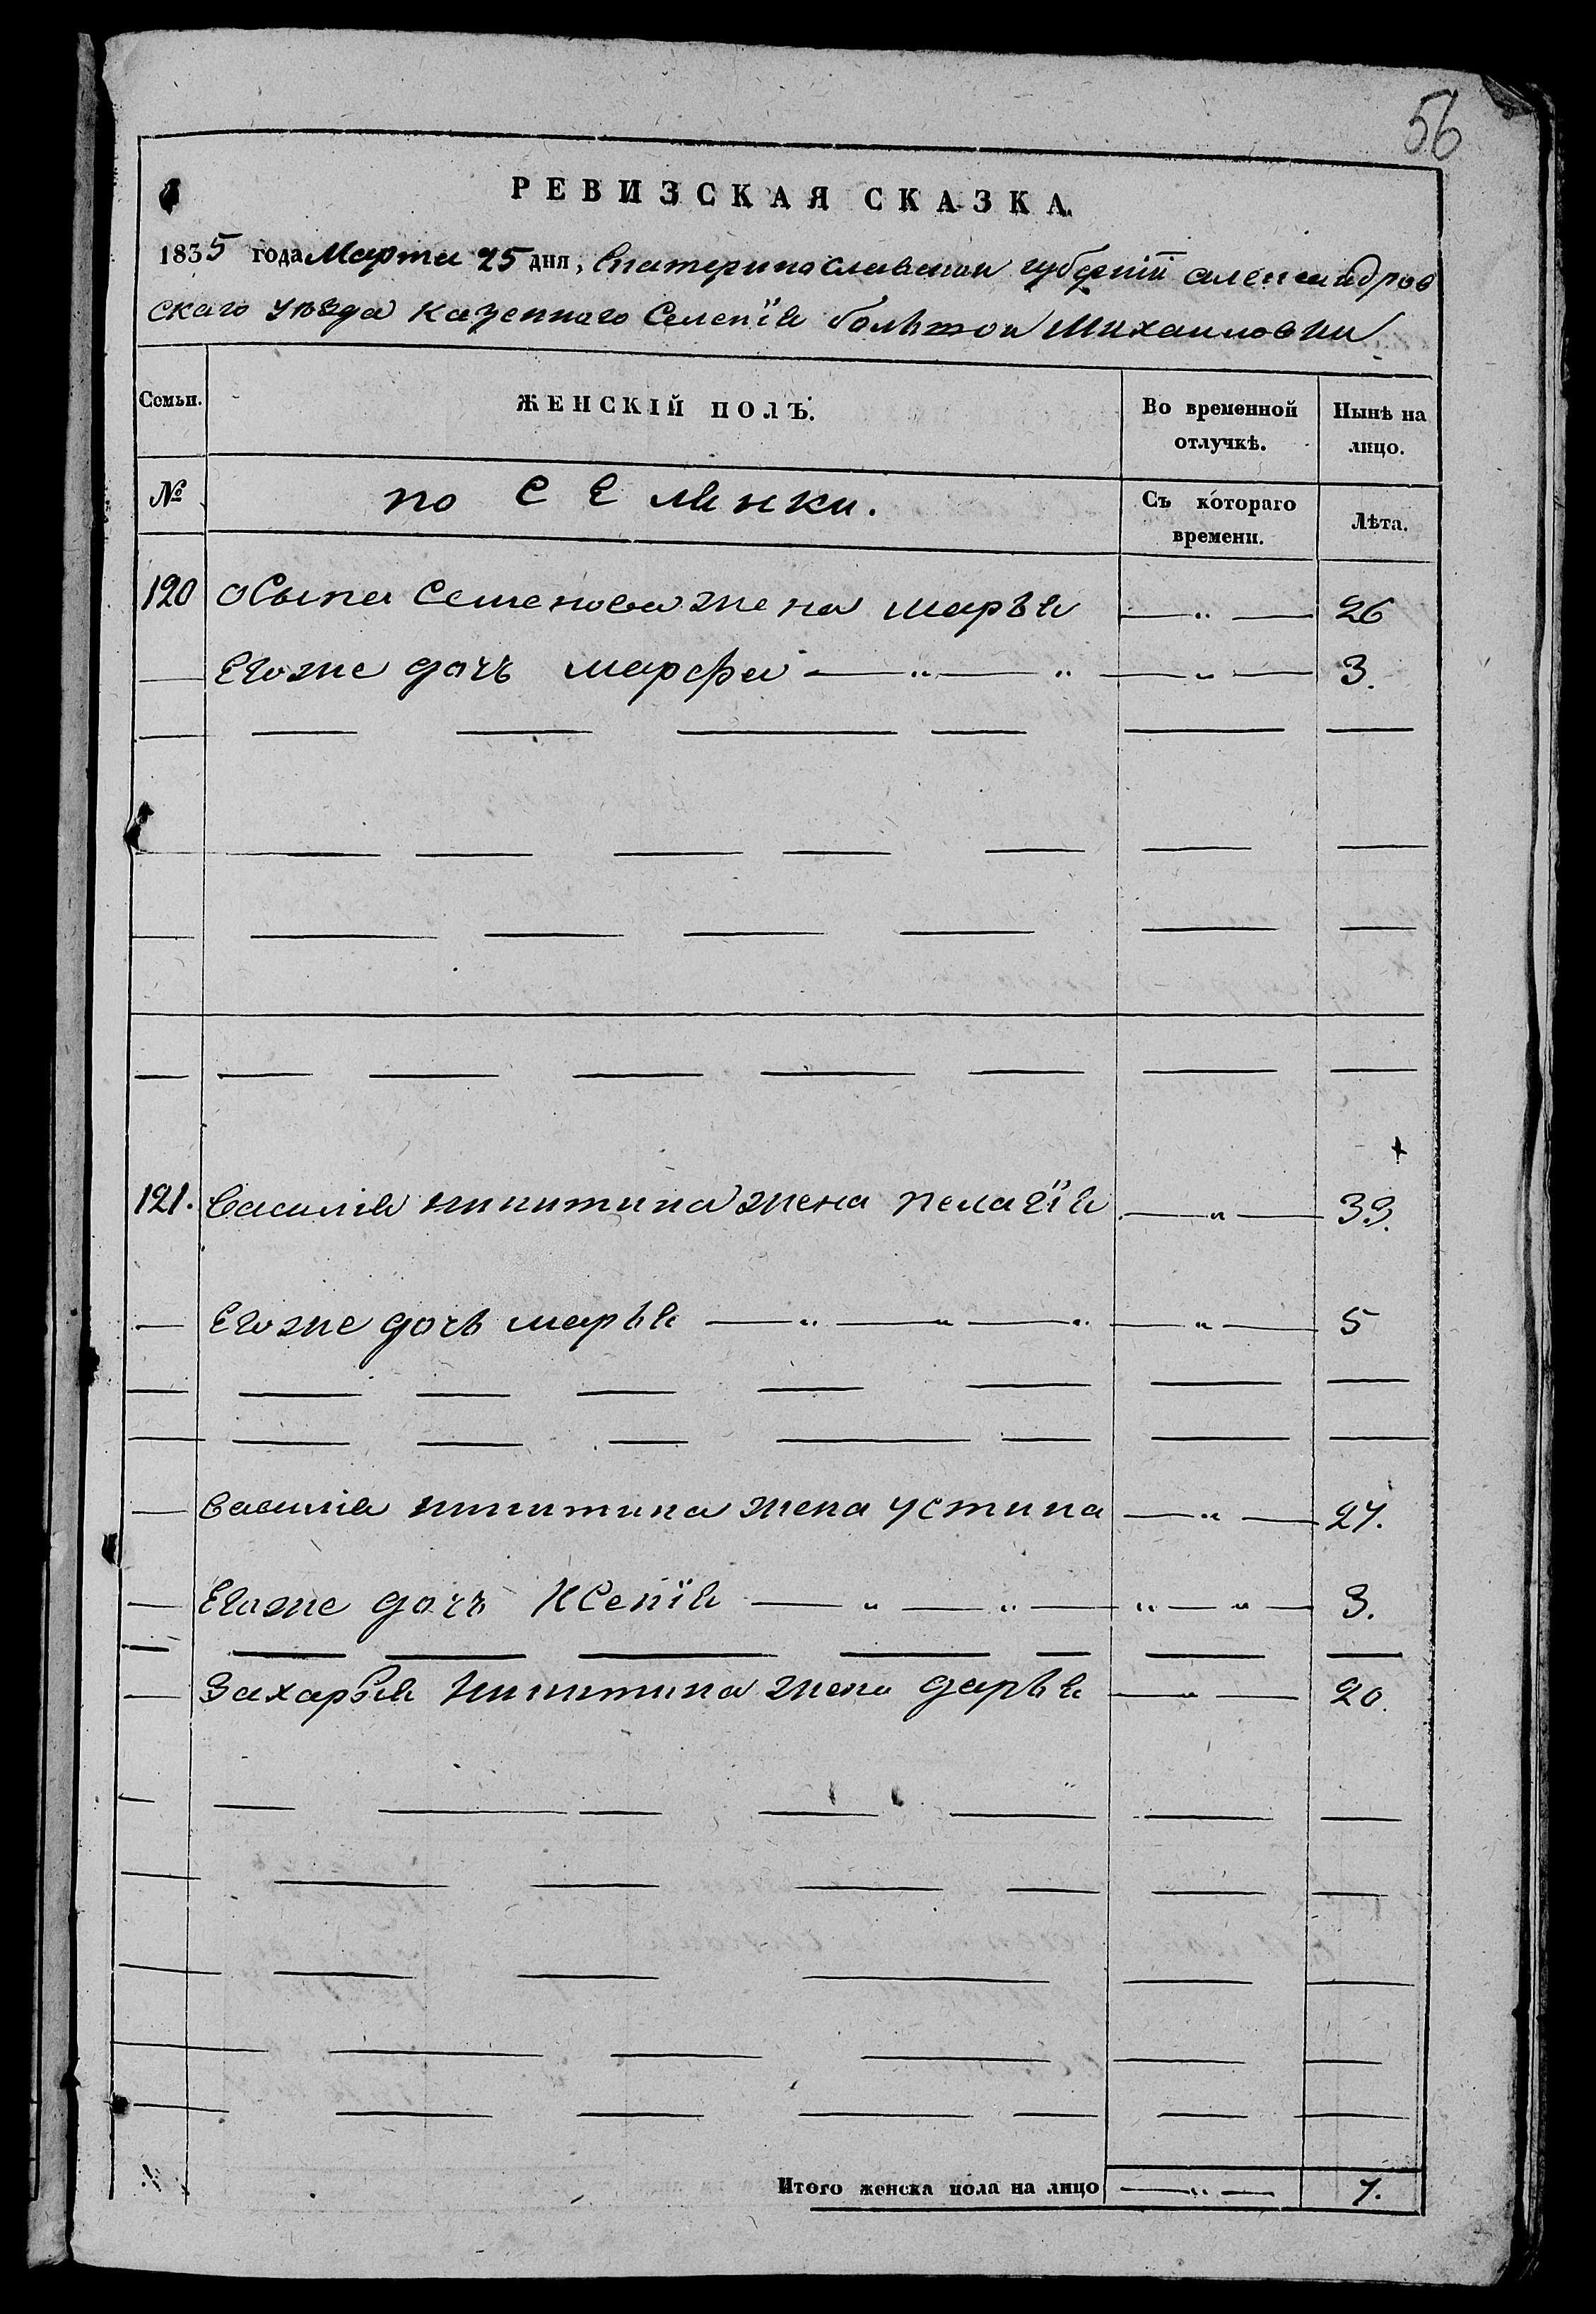 56
РЕВИЗСКАЯ СКАЗКА.
1835 года Марта 25 дня, Екатеринославскои губернїи александров
скаго уезда казенного Селенїя большои Михаиловки
Семьи.
ЖЕНСКІЙ ПОЛЪ.
Во временной отлучкѣ.
Нынѣ на лицо.
№
поселянки.
Съ котораго времени.
Лѣта.
120 осыпа Семенова жена марья — " — 26
— Егоже дочъ марфа — " — " — " — 3.
121. Василія никитина жена пелагїя — " — 39.
— Егоже дочь марья — " — " — " — " — 5
— Савелія никитина жена устина — " — 27.
— Егоже дочъ Ксенїя — " — " — " — " — 3.
— Захарья Никитина жена дарья — " — 20.
Итого женска пола на лицо — " — 7.